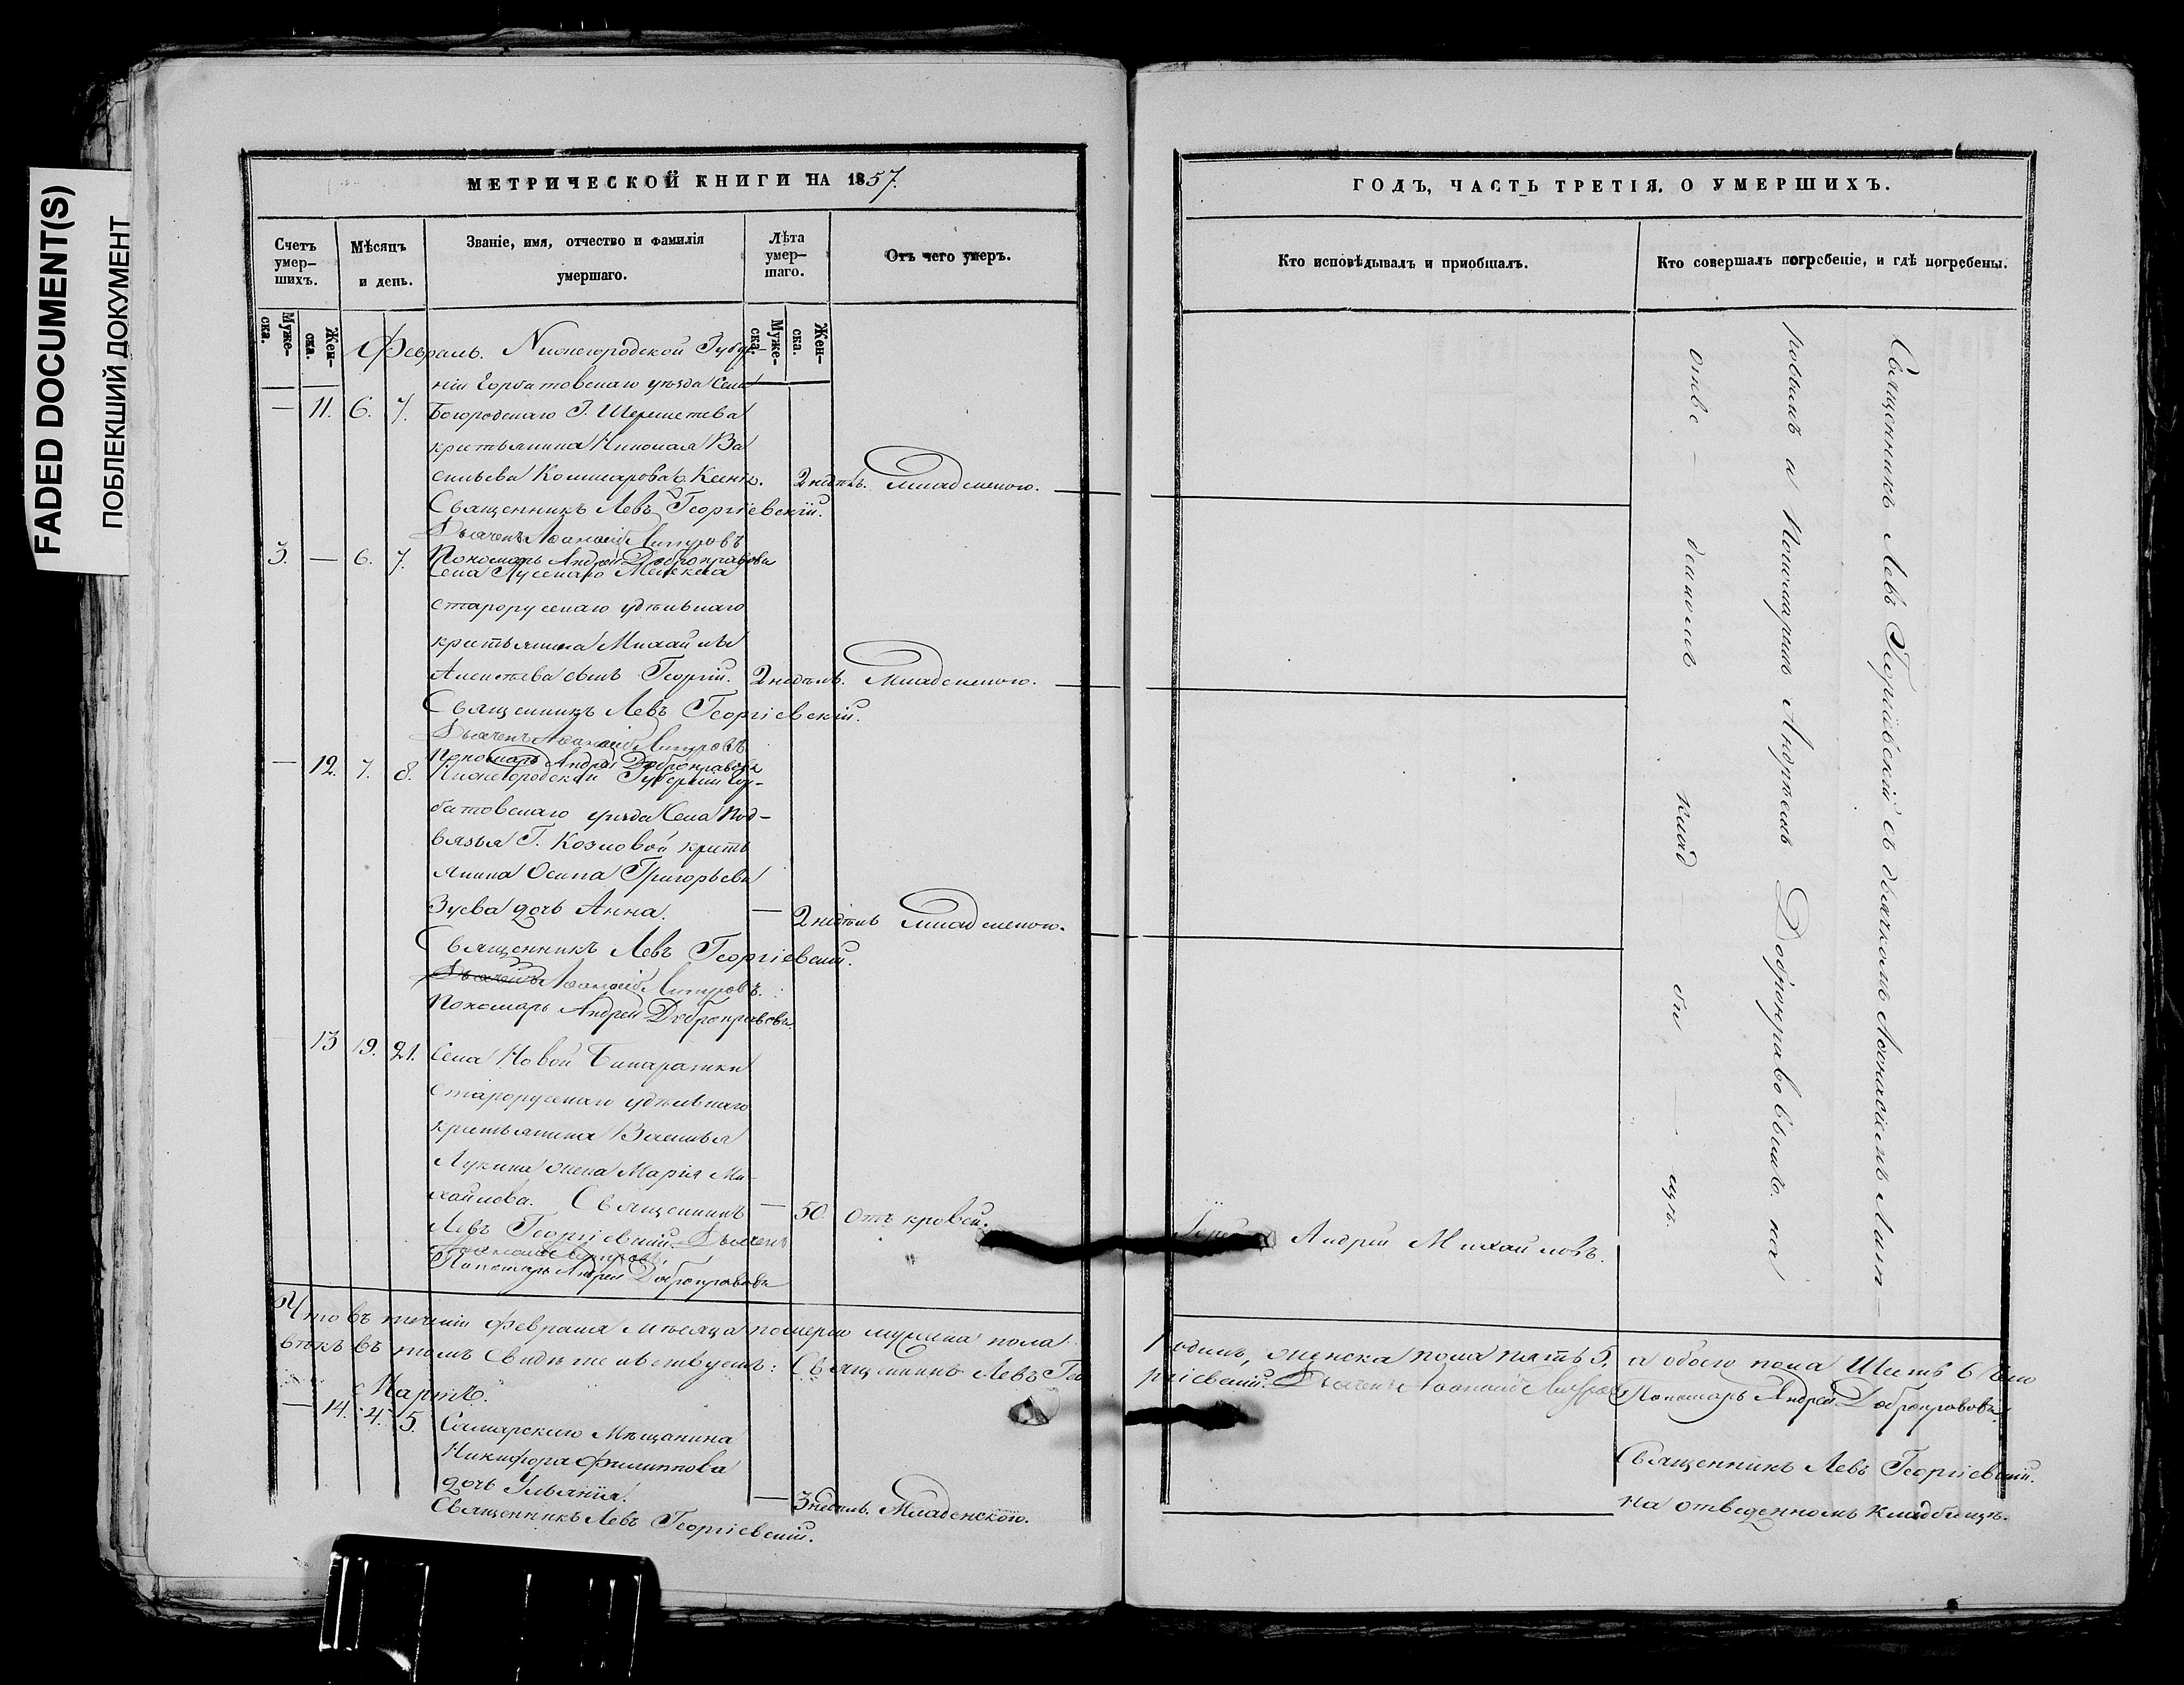 FADED DOCUMENT(S)
ПОБЛЕКШИЙ ДОКУМЕНТ
МЕТРИЧЕСКОЙ КНИГИ НА 1857.
Счетъ умер-шихъ.
Мѣсяцъ и день.
Званіе, имя, отчество и фамилія умершаго.
Лѣта умер-шаго.
Отъ чего умеръ.
Муже-ска.
Жен-ска.
Муже-ска.
Жен-ска.
Февраль. Нижегородской Губер-
ніи Горбатовскаго уѣзда Села
— 11. 6. 7. Богородскаго Г. Шереметева
крестьянина Николая Ва
сильева Комисарова д. Ксенія. 2 недѣль. Младенскою.
Священникъ Левъ Георгіевскій.
Дьячекъ
Пономарь Андрей Доброправовъ
3. — 6. 7. Села Русскаго Мелекеса
старорусскаго удѣльнаго
крестьянина Михайлы
Алексѣева сынъ Георгій. 2 недѣль. Младенскою.
Священникъ Левъ Георгіевскій.
Дьячекъ
Пономарь Андрей Доброправовъ
— 12. 7. 8. Нижегородской Губерніи Гор-
батовскаго уѣзда Села Под-
вязья Г. Козловой кресть
янина Осипа Григорьева
Зуева дочь Анна. — 2 недѣль Младенскою.
Священникъ Левъ Георгіевскій.
Дьячекъ
Пономарь Андрей Доброправовъ.
13 19. 21. Села Новой Бинарадки
старорусскаго удѣльнаго
крестьянина Василья
Лукина жена Марія Ми-
хайлова. Священникъ — 50. Отъ кровей.
Левъ Георгіевскій. Дьячекъ
Пономарь Андрей Доброправовъ
Что въ теченіи Февраля мѣсяца померло мужска пола
въ томъ свидѣтельствуемъ: Священникъ Левъ Гео
Мартъ.
— 14. 4. 5. Самарскаго Мѣщанина
Никифора Филиппова
дочь Ульянія. — 3 недѣль. Младенскою.
Священникъ Левъ Георгіевскій.
ГОДЪ, ЧАСТЬ ТРЕТІЯ, О УМЕРШИХЪ.
Кто исповѣдывалъ и пріобщалъ.
Кто совершалъ погребеніе, и гдѣ погребены.
Священникъ Левъ Георгіевскій съ дьячкомъ
ровымъ и Пономаремъ Андреемъ Доброправовымъ. на
отве — денномъ клад — би — щѣ.
Іерей Андрей Михайловъ.
одинъ, женска пола пять 5. а обоего пола Шесть 6
ргіевскій. Дьячекъ Пономарь Андрей Доброправовъ.
Священникъ Левъ Георгіевскій.
На отведенномъ кладбищѣ.